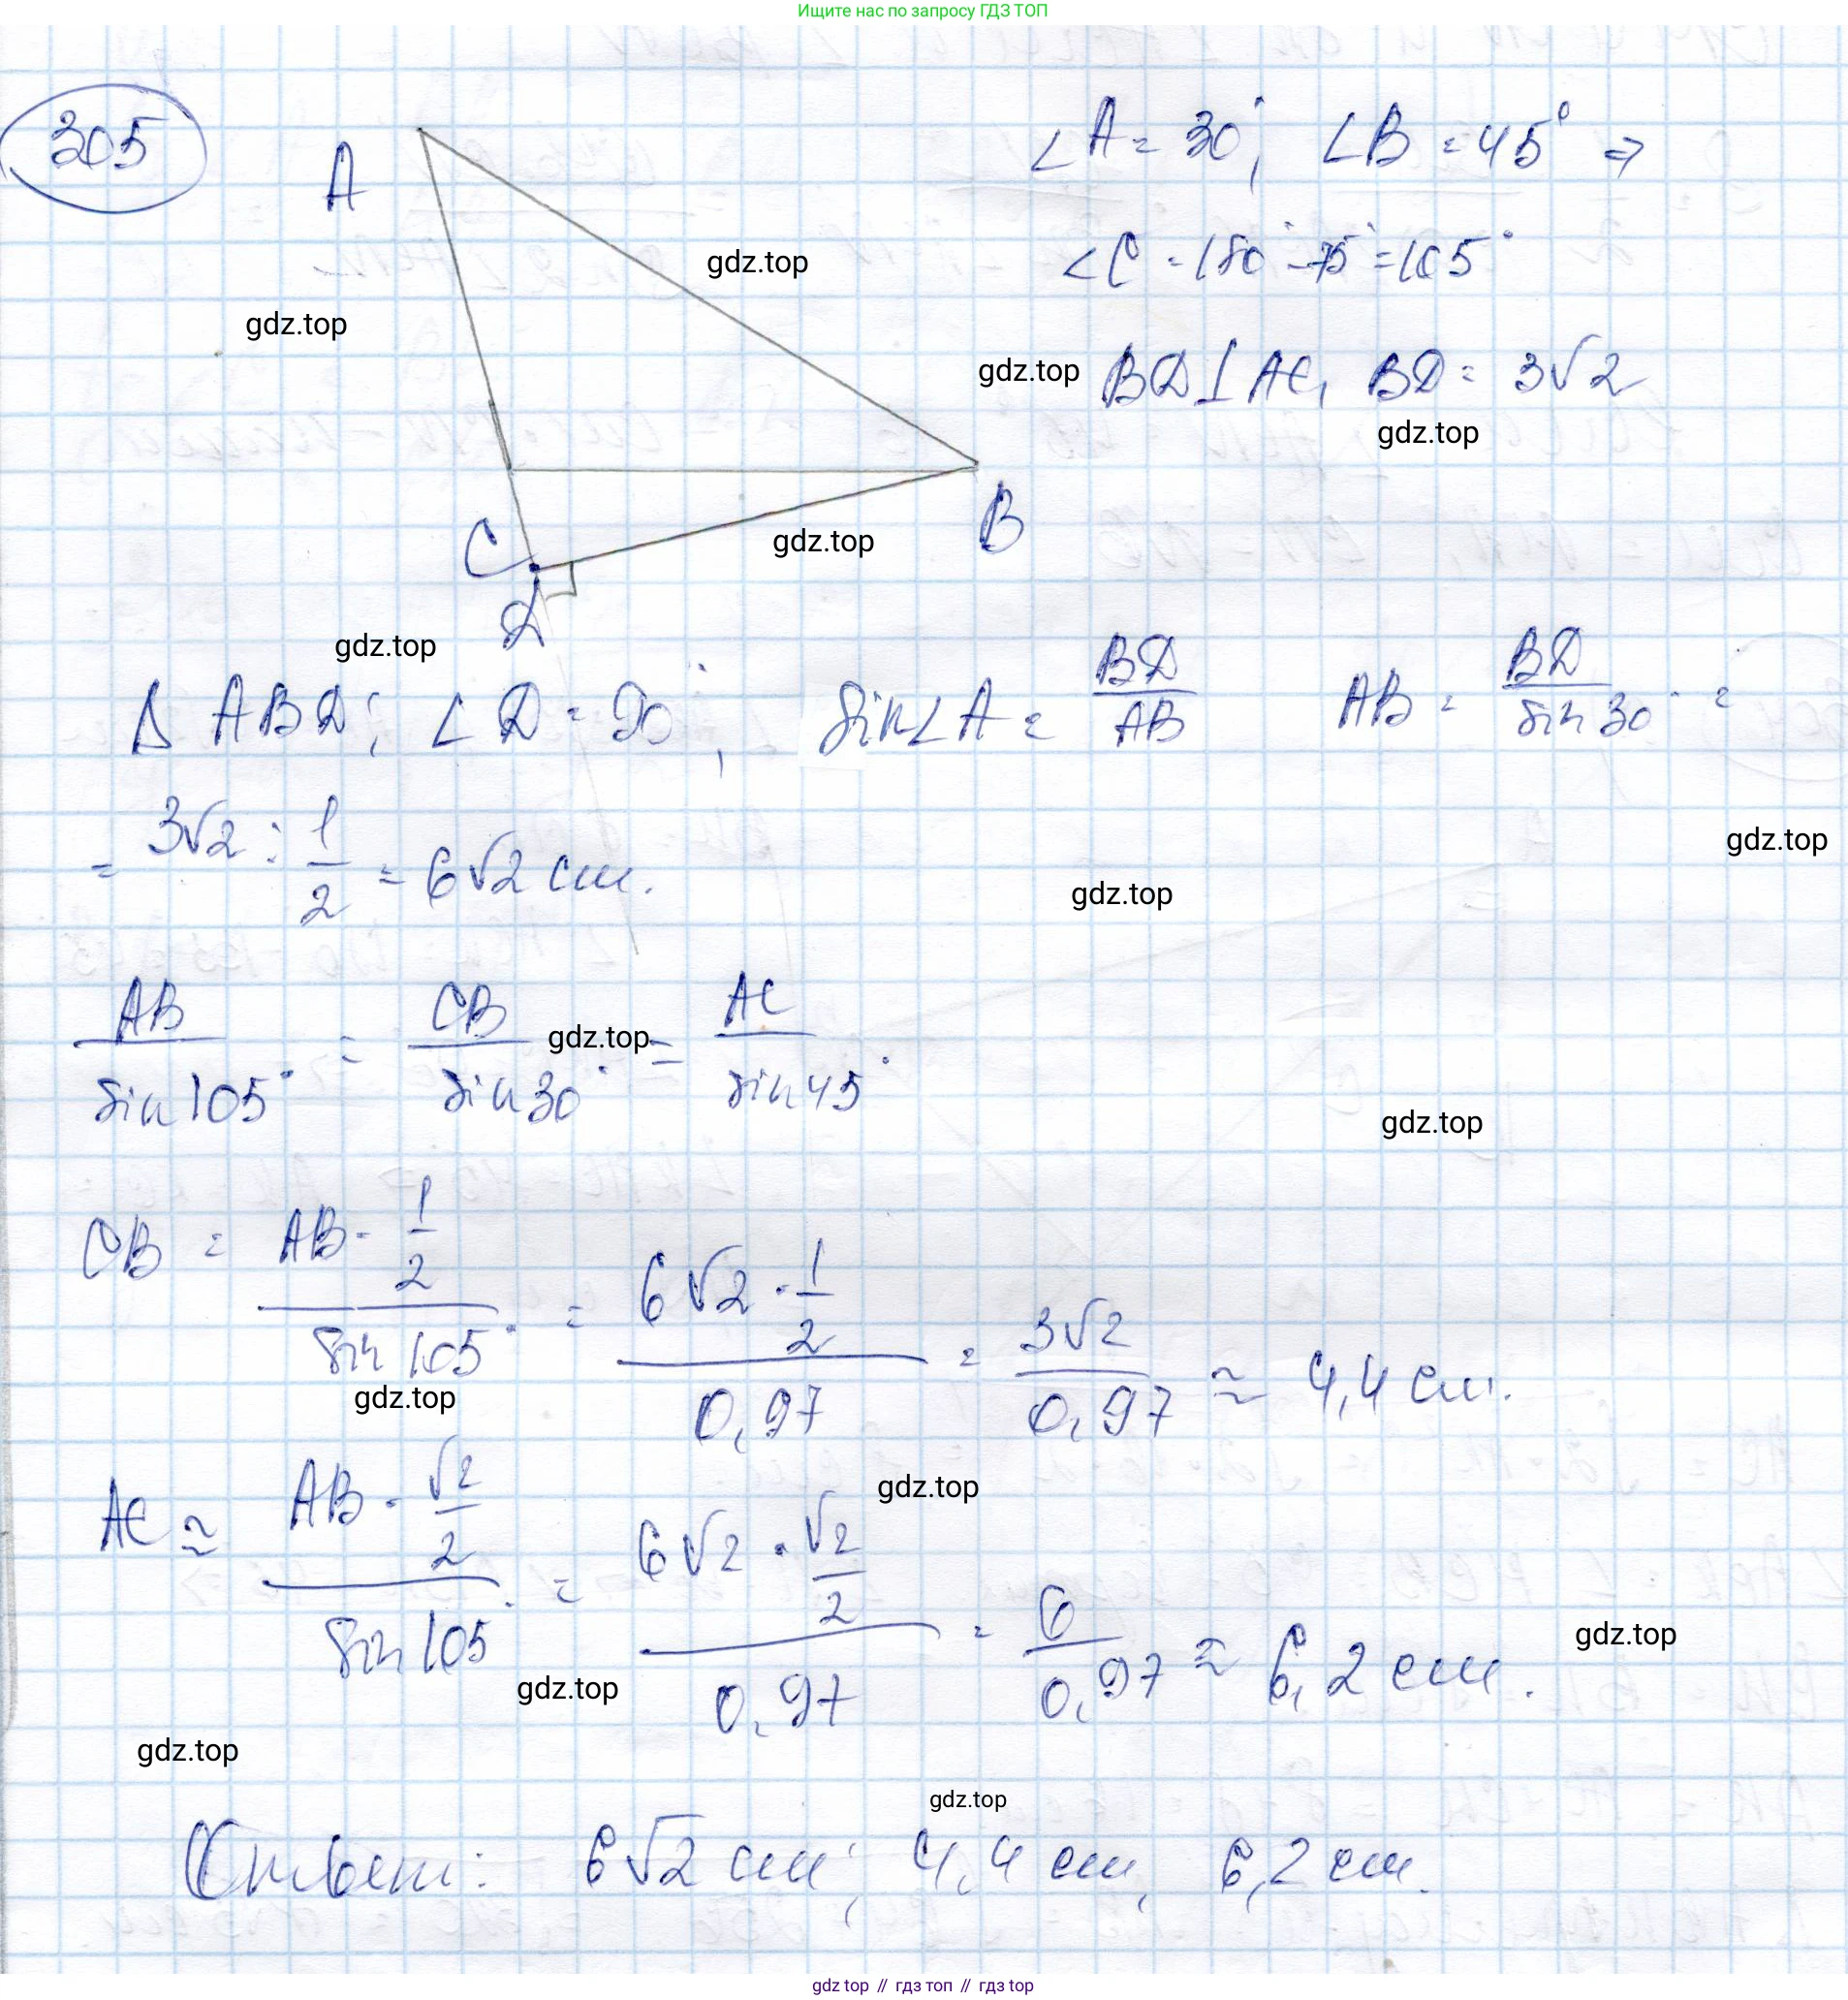 Ищите нас по запросу ГДЗ ТОП
305
A
∠A = 30°, ∠B = 45° ⇒
gdz.top
∠C = 180° - 75° = 105°
gdz.top
gdz.top
BD⊥AC, BD = 3√2
gdz.top
B
C
gdz.top
D
gdz.top
Δ ABD; ∠D = 90°, sin∠A = BD/AB AB = BD/sin 30° =
= 3√2 : 1/2 = 6√2 см.
gdz.top
gdz.top
AB/sin 105° = CB/sin 30° = AC/sin 45°
gdz.top
gdz.top
CB = (AB · 1/2)/sin 105° = (6√2 · 1/2)/0,97 = 3√2/0,97 ≈ 4,4 см.
gdz.top
gdz.top
AC ≈ (AB · √2/2)/sin 105° = (6√2 · √2/2)/0,97 = 6/0,97 ≈ 6,2 см.
gdz.top
gdz.top
gdz.top
gdz.top
Ответ: 6√2 см; 4,4 см, 6,2 см.
gdz top // гдз топ // гдз top